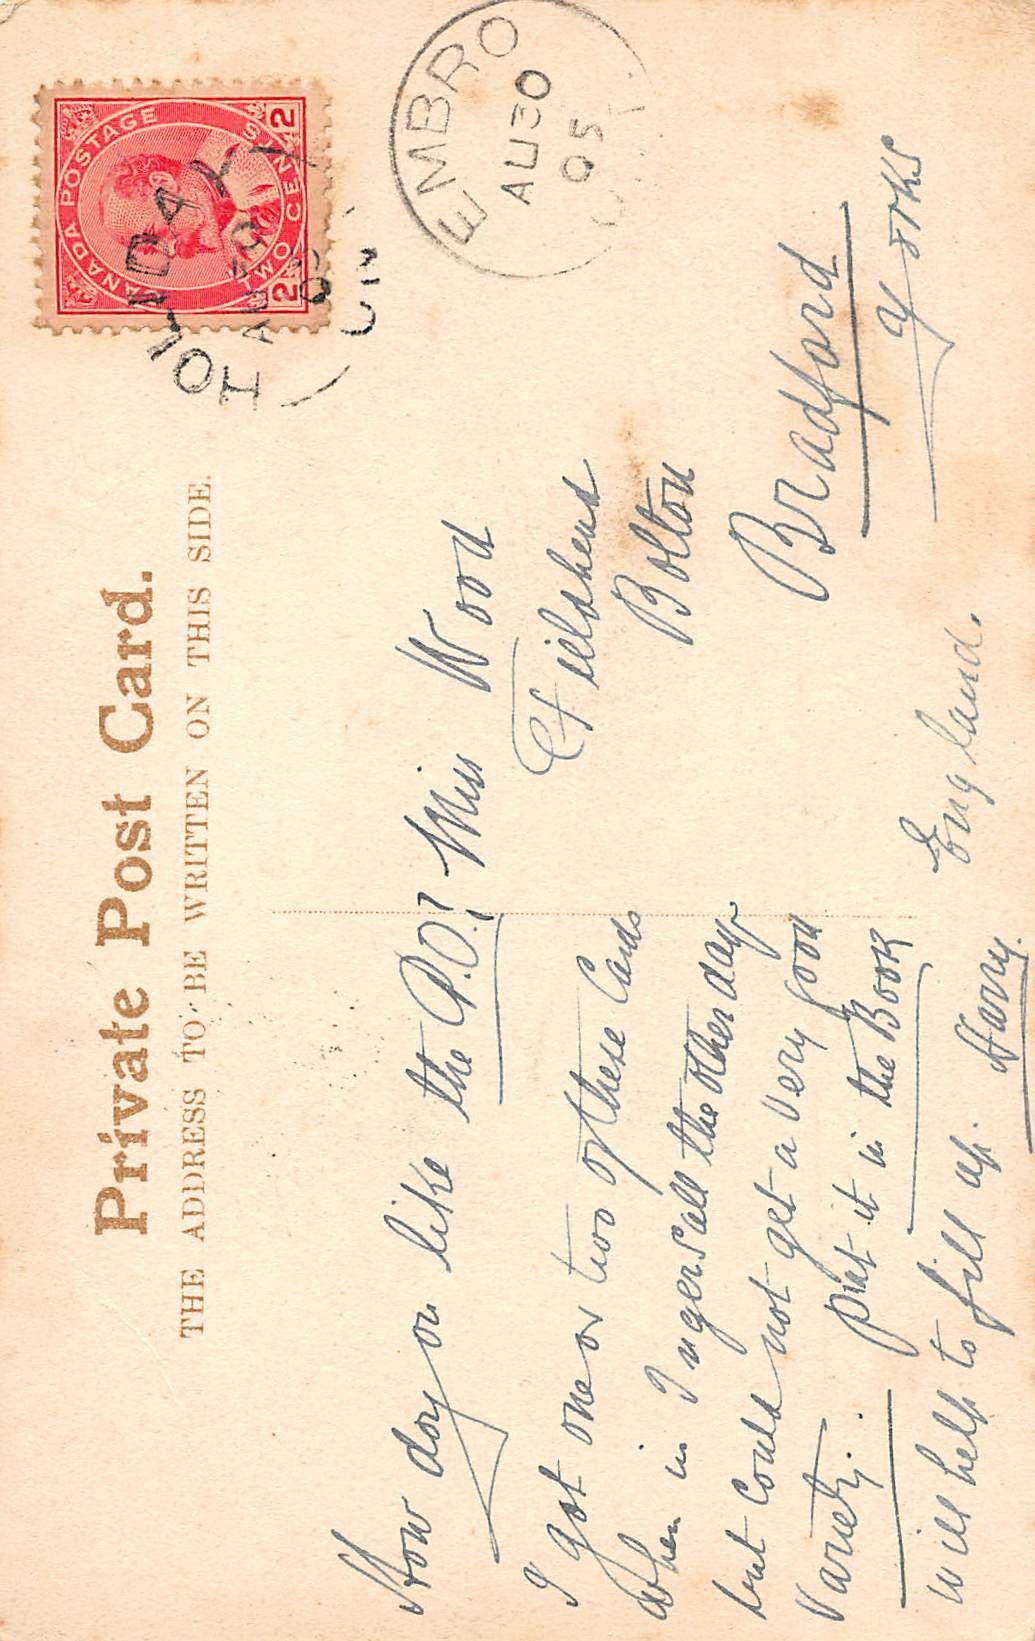 Private Post Card.
THE ADDRESS TO BE WRITTEN ON THIS SIDE.
CANADA POSTAGE
TWO CENTS
2 2
HOLIDAY
AU 30
05
ONT
EMBRO
AU 30
05
How do you like the P.O.?
I got one or two of these Cards
when in Ingersoll the other day
but could not get a very good
variety. put it in the Book
will help to fill up. Harry.
Miss Wood
Fieldhead
Bolton
Bradford
Yorks
England.